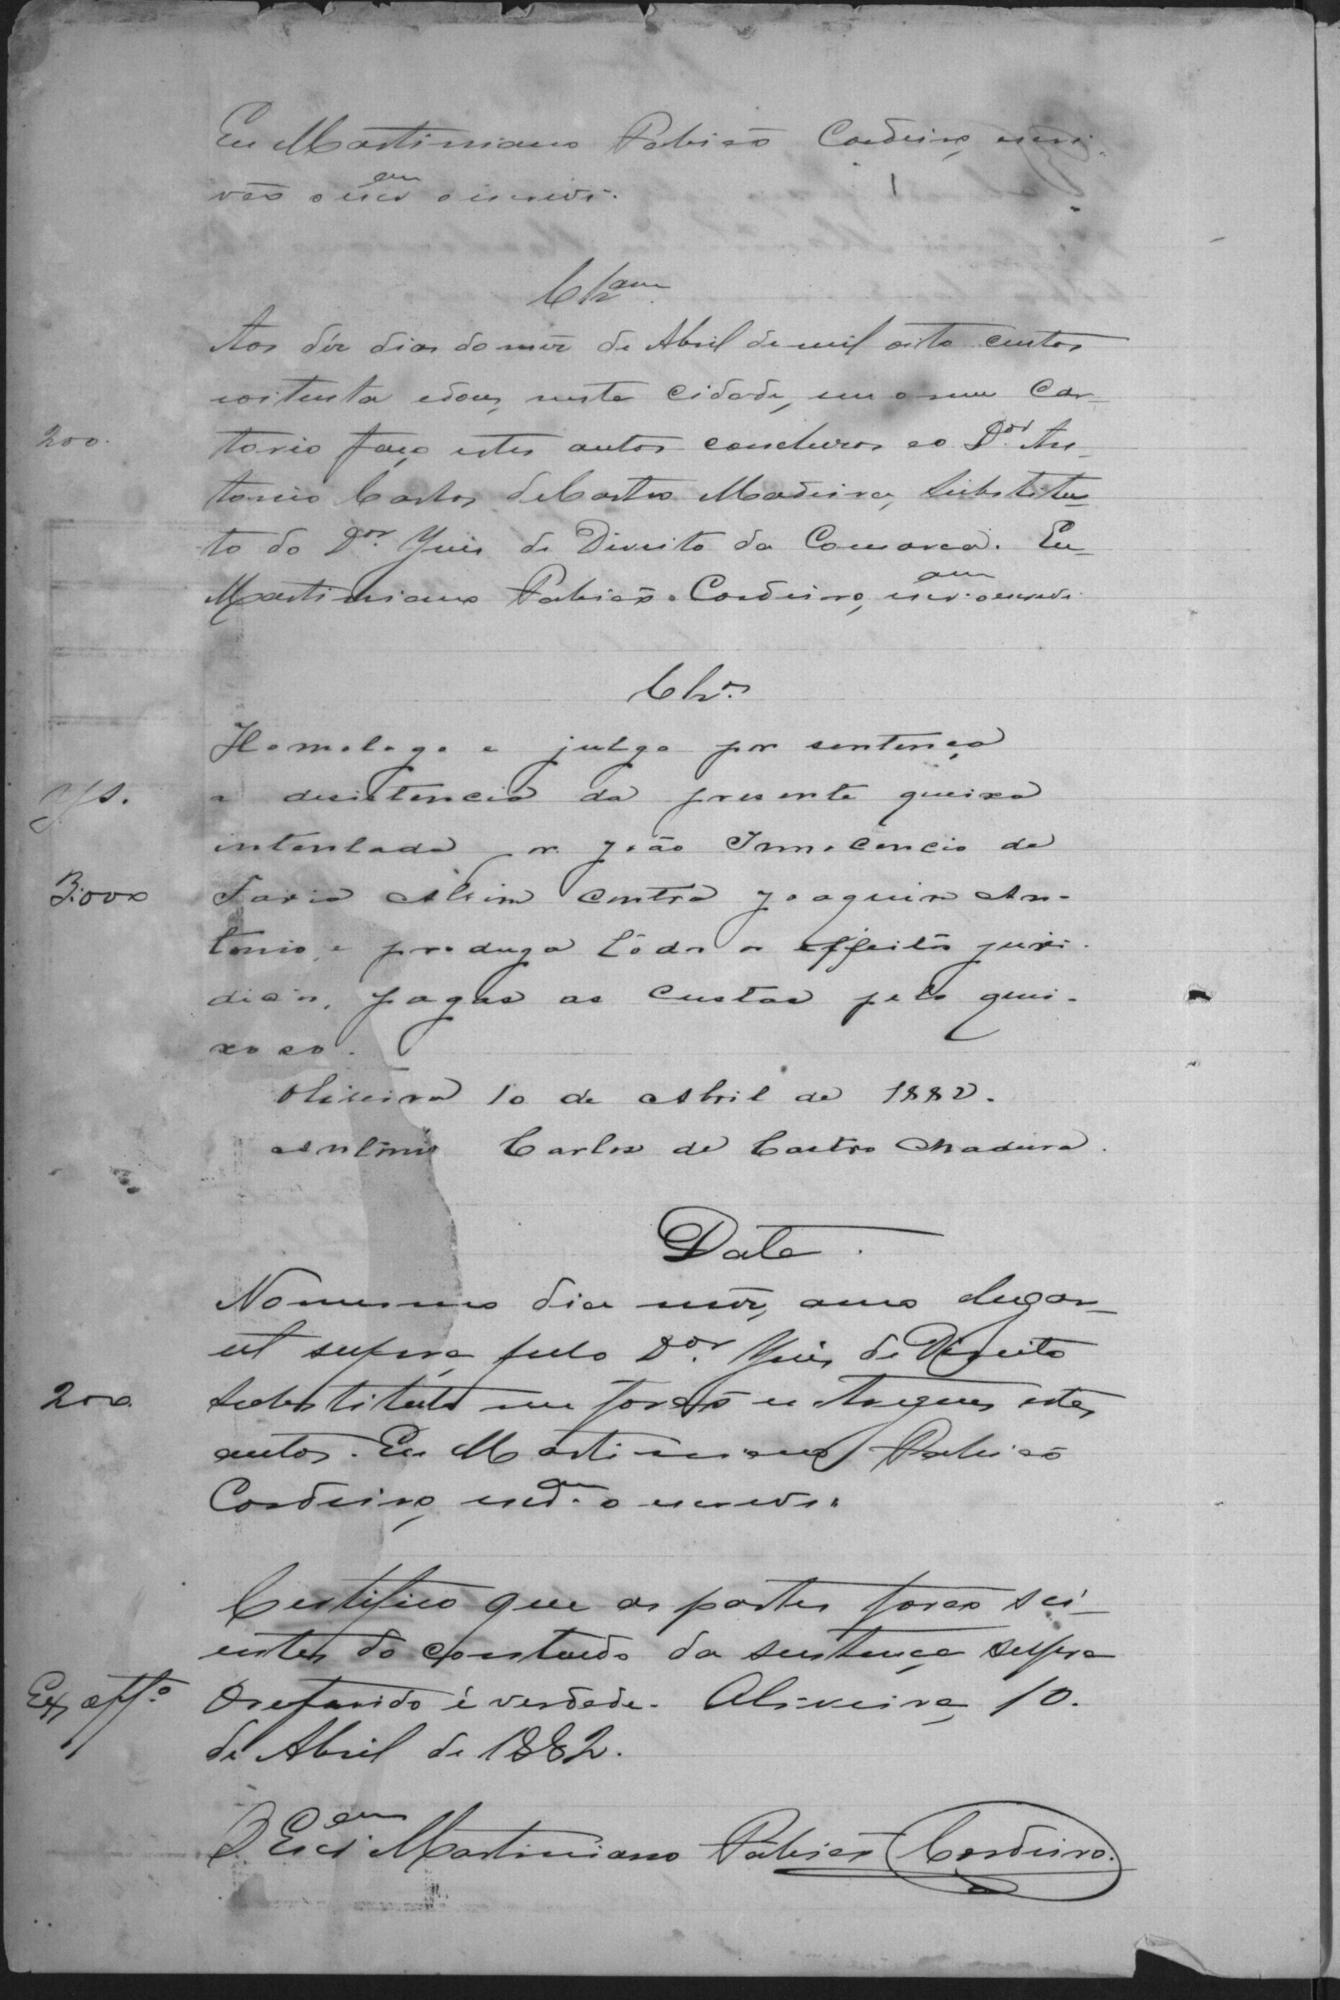 Eu Martiniano Fabião Cordeiro, escri-
vão o escr.am o escrevi.
Clz.am
Aos dez dias do mez de Abril de mil oito centos
e oitenta e dous, nesta cidade, em o meu Car-
200. torio faço estes autos concluzos ao D.or An-
tonio Carlos de Castro Madeira, Substitu-
to do D.or Yuis de Direito da Comarca. Eu
Martiniano Fabião Cordeiro, escr.am o escrevi.
Clz.os
Homologo e julgo por sentença
a desistencia da presente queixa
intentada por João Innocencio de
3:000 Faria Alvim contra Joaquim An-
tonio, e produza tôdos os effeitos juri-
dicos, pagas as custas pelo quei-
xoso.
Oliveira 10 de Abril de 1882.
Antônio Carlos de Castro Madeira.
Data.
No mesmo dia mez, anno e lugar
ut supra, pelo D.or Yuis de Direito
200. Substituto me forão entregues estes
autos. Eu Martiniano Fabião
Cordeiro, escr.am o escrevi.
Certifico que as partes forão sci-
entes do contendo da sentença supra
Ex off.o O referido é verdade. Oliveira, 10.
de Abril de 1882.
O Escr.am Martiniano Fabião Cordeiro.